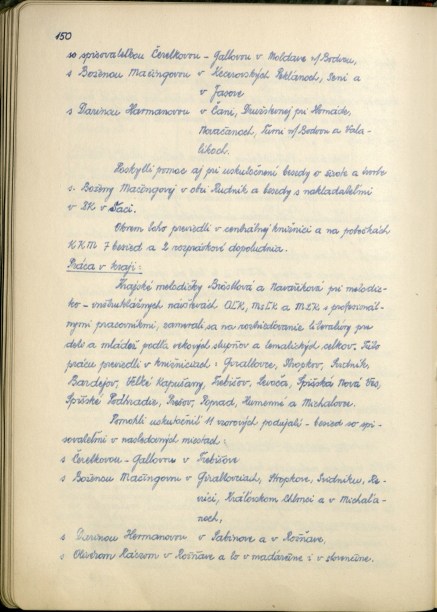 150
so spisovateľkou Čerelkovou - Gallovou v Moldave n/Bodvou,
s Boženou Mačingovou v Kecerovských Peklánoch, Seni a
v Jasove
s Darinou Harmanovou v Čani, Družstevnej pri Hornáde,
Novačanoch, Turni n/Bodvou a Vala-
likoch.
Poskytli pomoc aj pri uskutočnení besedy o živote a tvorbe
s. Boženy Mačingovej v obci Rudník a besedy s nakladateľmi
v ZK v Šaci.
Okrem toho previedli v centrálnej knižnici a na pobočkách
KKM 7 besied a 2 rozprávkové dopoludnia.
Práca v kraji:
Krajské metodičky Brůstlová a Kavuliaková pri metodic-
ko - inštruktážnych návštevách OĽK, MsĽK a MĽK s profesionál-
nymi pracovníkmi, zamerali sa na rozširovanie literatúry pre
deti a mládež podľa vekových stupňov a tematických celkov. Túto
prácu previedli v knižniciach: Giraltovce, Stropkov, Svidník,
Bardejov, Veľké Kapušany, Trebišov, Levoča, Spišská Nová Ves,
Spišské Podhradie, Prešov, Poprad, Humenné a Michalovce.
Pomohli uskutočniť 11 vzorových podujatí - besied so spi-
sovateľmi v nasledovných miestach:
s Čerelkovou - Gallovou v Trebišove
s Boženou Mačingovou v Giraltovciach, Stropkove, Svidníku, Se-
nici, Kráľovskom Chlmci a v Michalia-
noch,
s Darinou Harmanovou v Sabinove a v Rožňave,
s Oliverom Ráczom v Rožňave a to v maďarčine i v slovenčine.